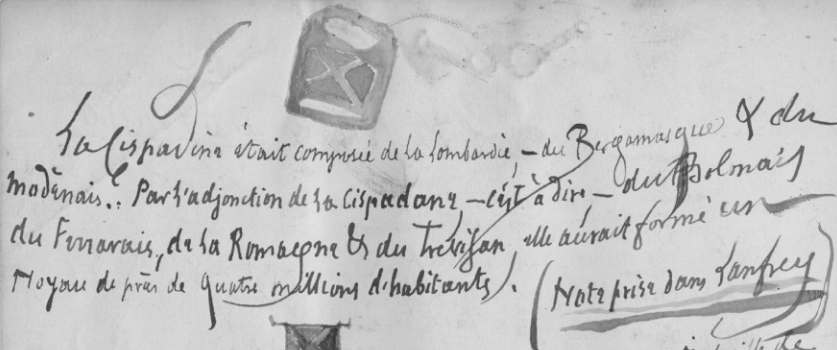 La Cispadine était composée de la Lombardie, – du Bergamasque & du
modènais. Par l'adjonction de la Cispadane, – c'est à dire – du Bolonais
du Ferrarais, de la Romagne & du Trévisan, elle aurait formé un
Noyau de près de quatre millions d'habitants).
(Note prise dans Lanfrey